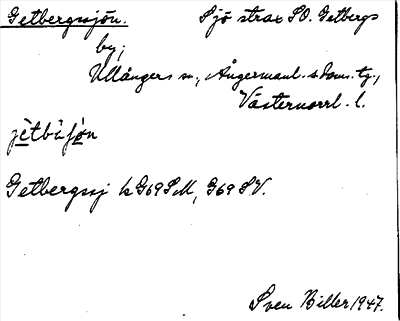 Getbergssjön. Sjö strax SO. Getbergs
by,
Ullångers sn., Ångermanl. s. doms. tg.,
Västernorrl. l.
jètbäʃòn
Getbergssj k G69 SM, G69 SV.
Sven Biller 1947.